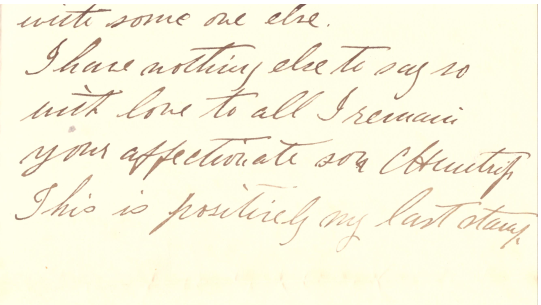 with some one else.
I have nothing else to say so
with love to all I remain
your affectionate son
This is positively my last stamp